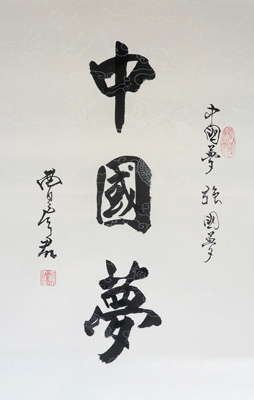 中國夢 強國夢
中國夢